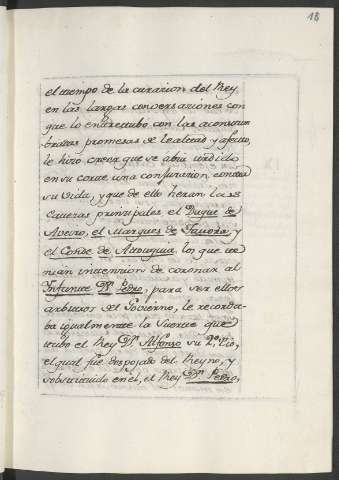 18
el tiempo de la curacion del Rey,
en las largas conversaziones con
que lo entretubo con las acostum
bradas promesas de lealtad y afecto,
le hizo creer que se abia urdido
en su corte una conjuracion contra
su vida, y que de ello heran las
Cauezas prinsipales el Duque de
Aveiro, el Marques de Tavora, y
el Conde de Attouguia los que te
nian intencion de coronar al
Infante Dn. Pedro, para ser ellos
arbitros del Govierno, le recorda-
ba igualmente la Suerte que
tubo el Rey Dn. Alfonso su 2º. tio,
el qual fue despojado del Reyno, y
sobstituido en el, el Rey Dn. Pedro,